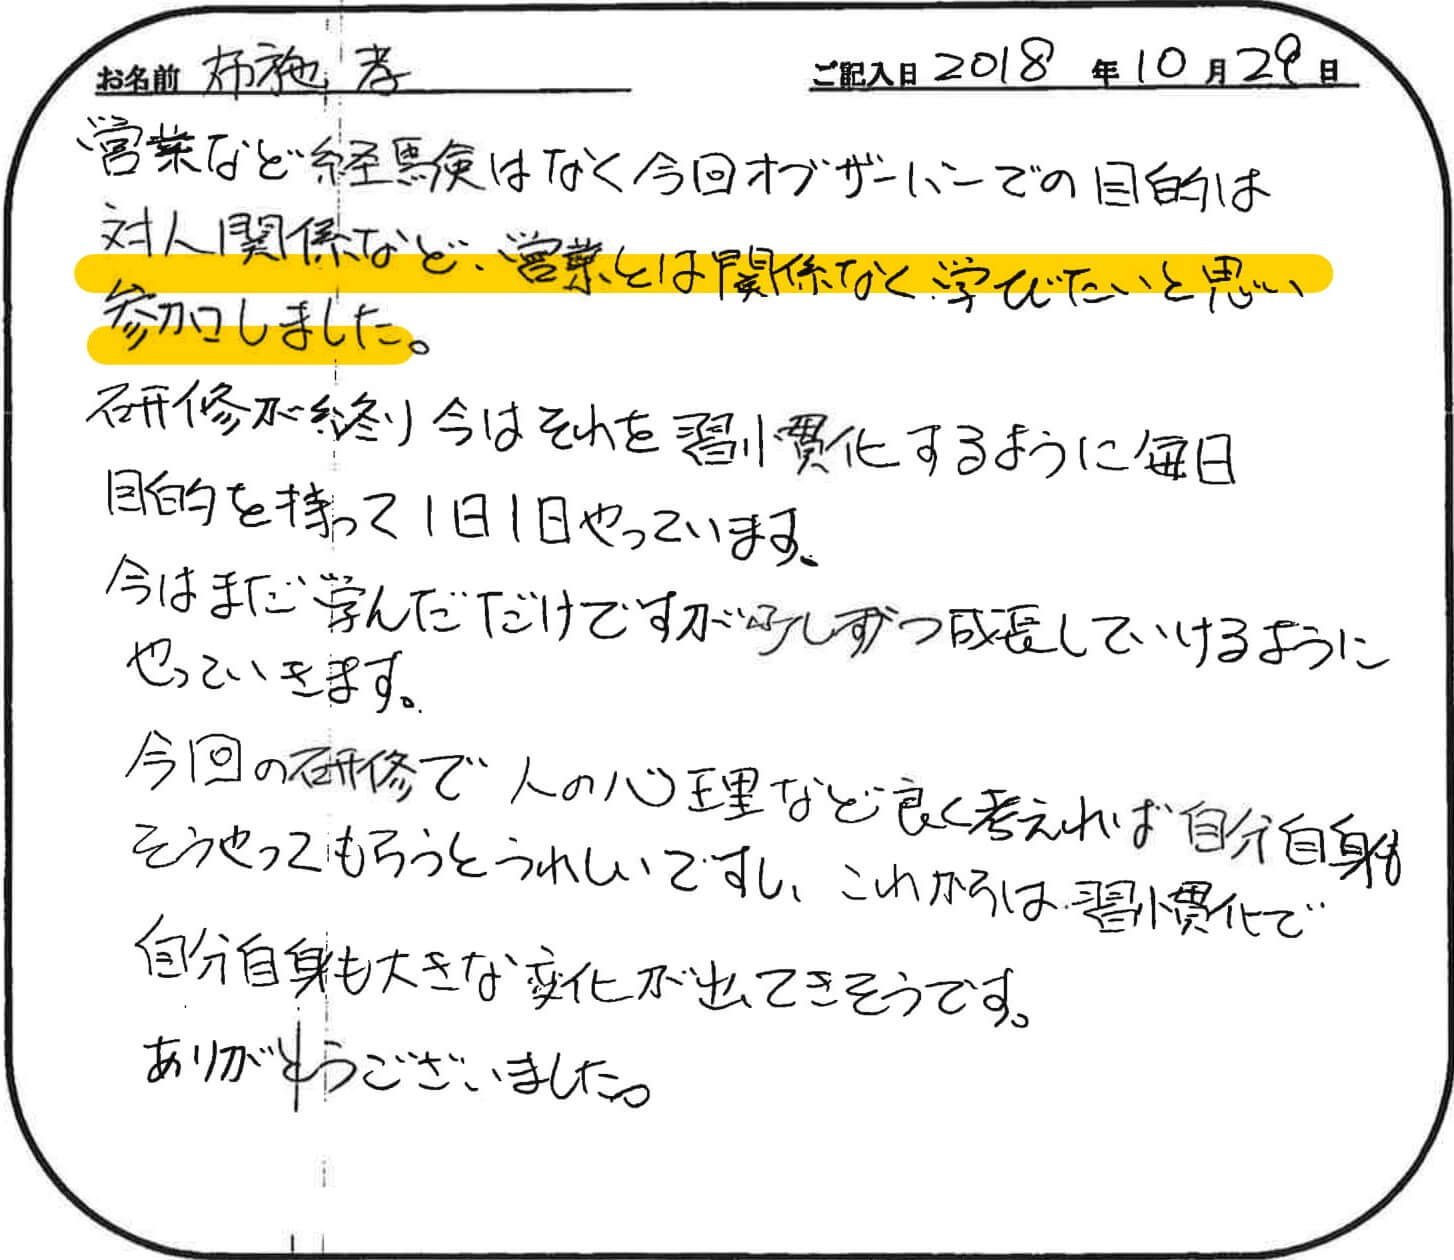 お名前 布施 孝 ご記入日 2018 年 10 月 29 日
営業など経験はなく今回オブザーバーでの目的は
対人関係など、営業とは関係なく学びたいと思い
参加しました。
研修が終り今はそれを習慣化するように毎日
目的を持って1日1日やっています。
今はまだ学んだだけですが少しずつ成長していけるように
やっていきます。
今回の研修で人の心理など良く考えれば自分自身も
そうやってもらうとうれしいですし、これからは習慣化で
自分自身も大きな変化が出てきそうです。
ありがとうございました。